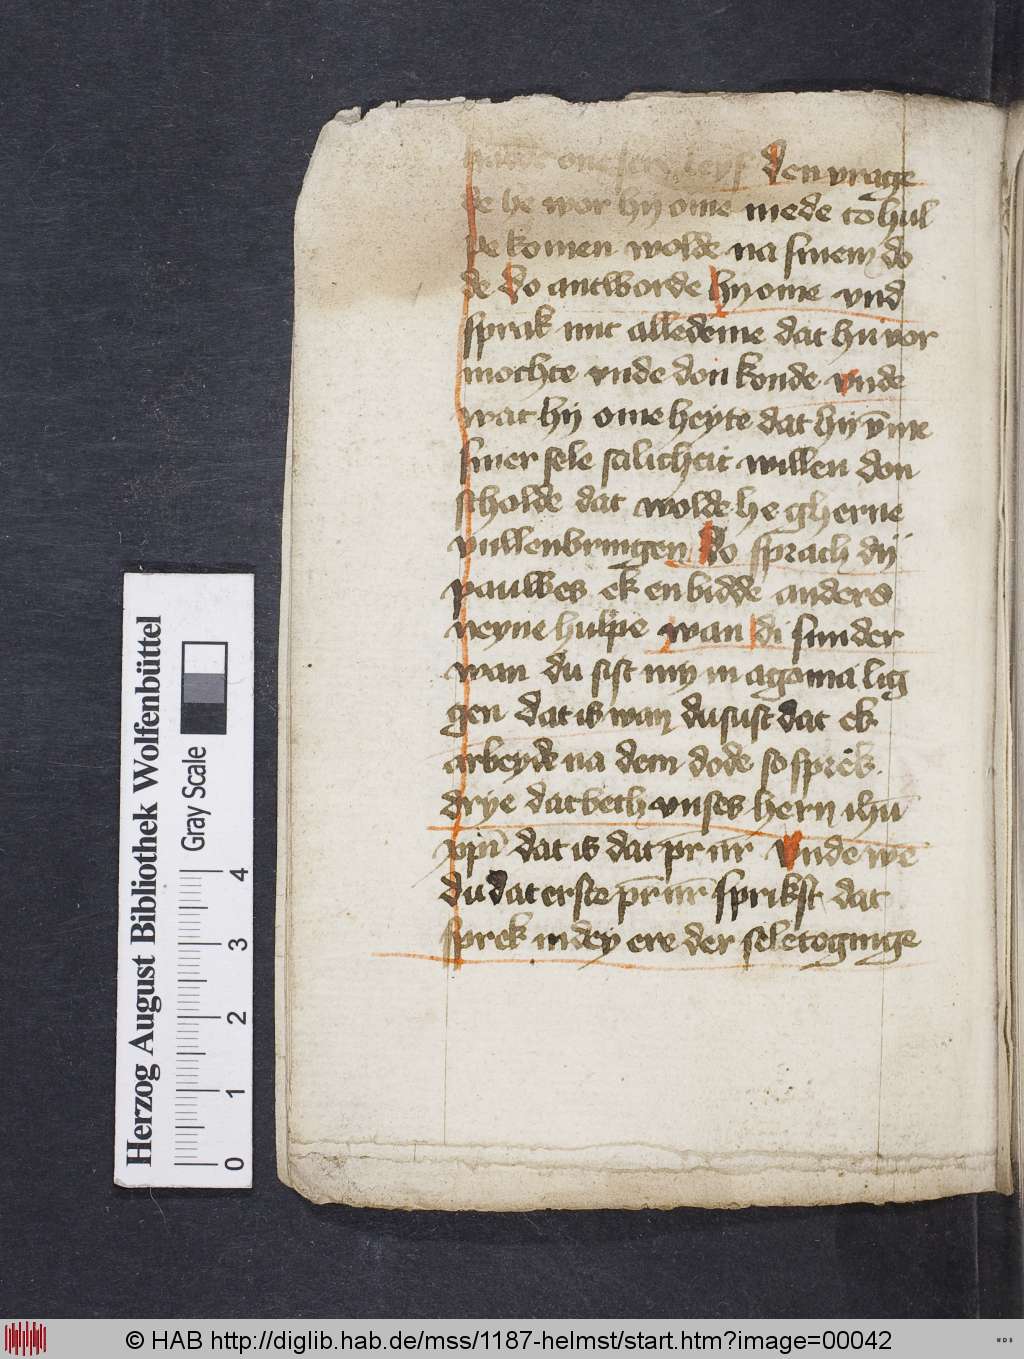 den vrage
de he wor hij ome mede to hul
pe komen wolde na sinem do
de do antworde hij ome vnd
sprak mit alledeme dat hu vor
mochte vnde don konde vnde
wat hij ome heyte dat hij v̄me
siner sele salicheit willen don
scholde dat wolde he gherne
vullenbringen do sprach dij
pauwes ek en bidde anders
neyne hulpe wan di sunder
wan du sist my in agonia lig
gen dat is wan du sust dat ek
arbeyde na dem dode so sprek
drye dat beth vnses hern ihu̅
xpi̅ dat is dat pr̅ nr̅ vnde we̅
du dat erste pr̅ nr̅ sprikst dat
sprek in dey ere der sele toginge
Herzog August Bibliothek Wolfenbüttel
Gray Scale
0 1 2 3 4
© HAB http://diglib.hab.de/mss/1187-helmst/start.htm?image=00042
WDB